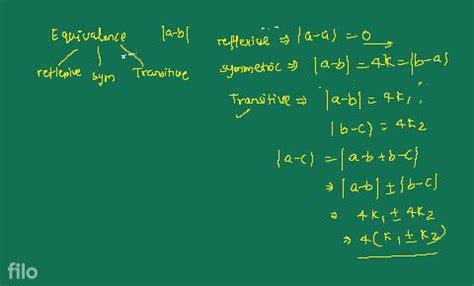 Equivalence |a-b|
reflexive sym Transitive
reflexive ⇒ |a-a| = 0
symmetric ⇒ |a-b| = 4K = |b-a|
Transitive ⇒ |a-b| = 4K₁
|b-c| = 4K₂
|a-c| = |a-b+b-c|
⇒ |a-b| ± |b-c|
⇒ 4K₁ ± 4K₂
⇒ 4(K₁ ± K₂)
filo